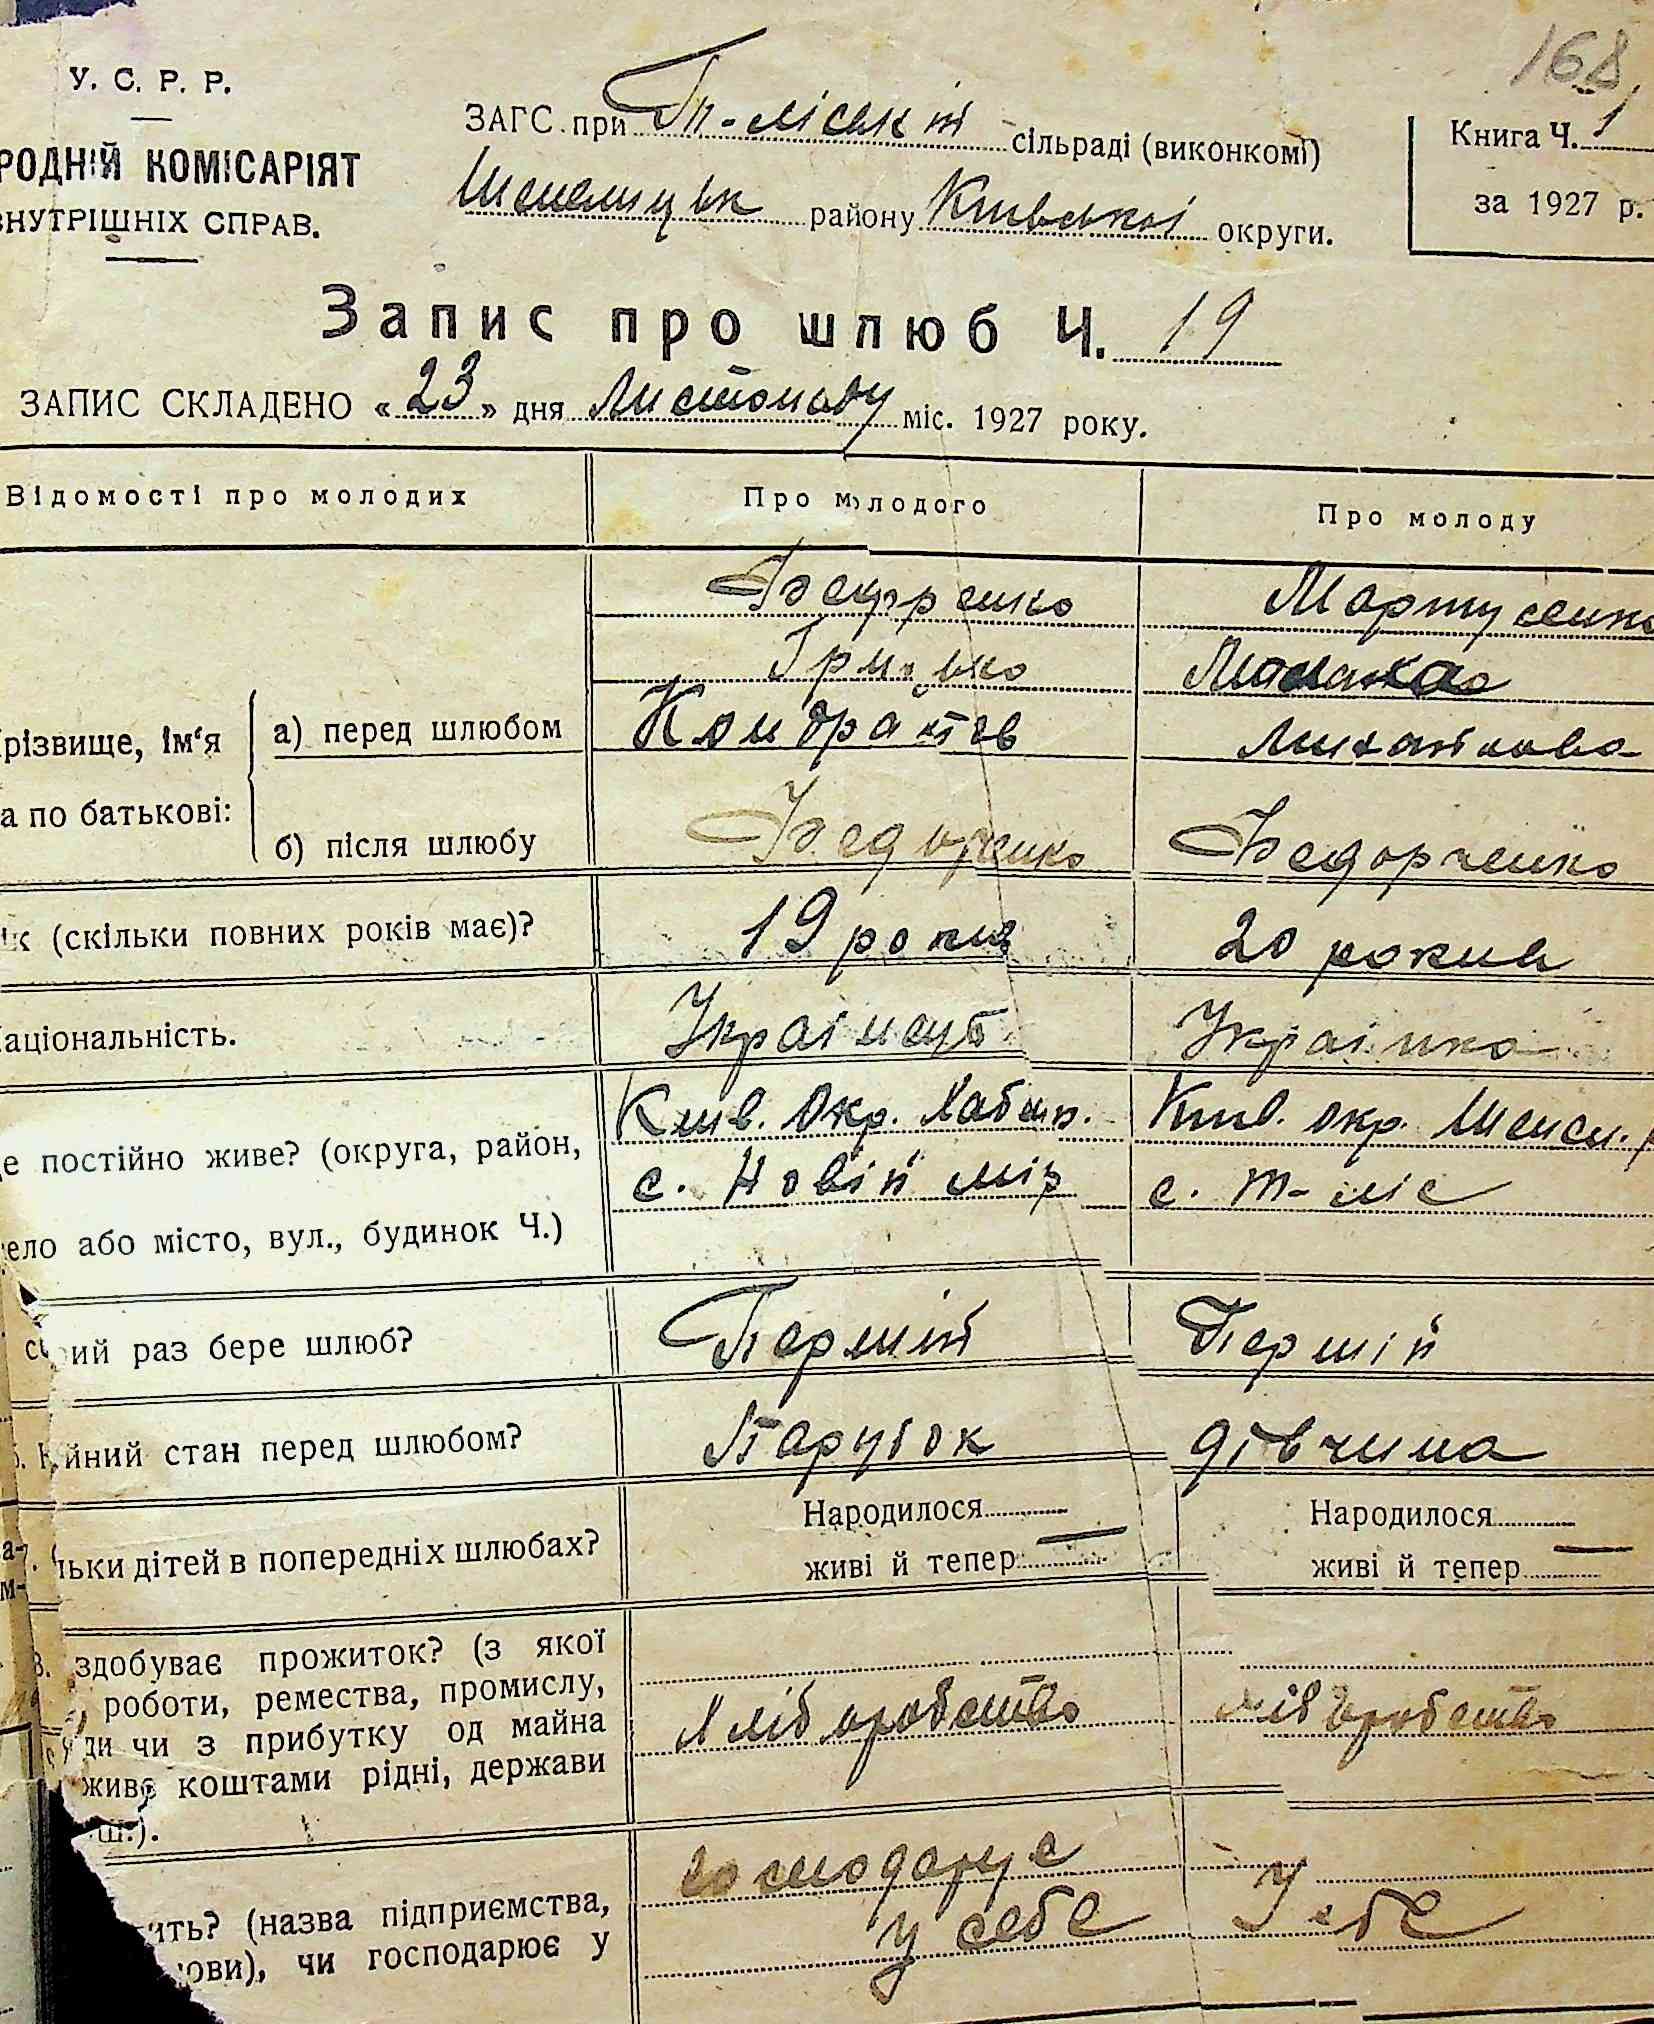 168
У. С. Р. Р.
РОДНІЙ КОМІСАРІЯТ
ВНУТРІШНІХ СПРАВ.
ЗАГС при Т-ліській сільраді (виконкомі)
Шепелицьк району Київської округи.
Книга Ч. 1
за 1927 р.
Запис про шлюб Ч. 19
ЗАПИС СКЛАДЕНО «23» дня Листопаду міс. 1927 року.
Відомості про молодих
Про молодого
Про молоду
різвище, ім'я
а по батькові:
а) перед шлюбом
Марту сенко
Грицько
Кондратів
Михайлова
б) після шлюбу
Федорченко
Федорченко
ік (скільки повних років має)?
19 років
20 років
аціональність.
Українець
Українка
е постійно живе? (округа, район,
ело або місто, вул., будинок Ч.)
Київ. Окр. Хабен.
с. Новій мір
Київ. окр. Шепел. р
с. Т-ліс
рий раз бере шлюб?
Перший
Перший
йний стан перед шлюбом?
Парубок
дівчина
льки дітей в попередніх шлюбах?
Народилося
живі й тепер —
Народилося
живі й тепер —
здобуває прожиток? (з якої
роботи, ремества, промислу,
ди чи з прибутку од майна
живе коштами рідні, держави
ш.).
Хліборобство
хліборобство
ить? (назва підприємства,
ови), чи господарює у
господарує
у себе
У себе